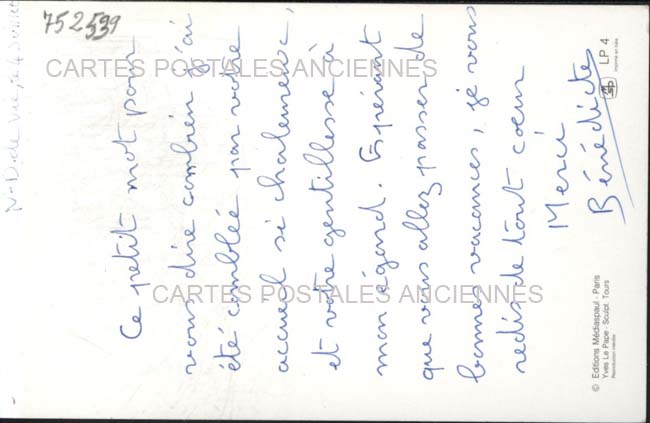 752539
CARTES POSTALES ANCIENNES
Ce petit mot pour
vous dire combien j'ai
été comblée par votre
accueil si chaleureux,
et votre gentillesse à
mon égard. Espérant
que vous allez passer de
bonne vacances, je vous
redis de tout coeur
Merci
Bénédicte
CARTES POSTALES ANCIENNES
© Editions Médiaspaul - Paris
Yves Le Pape - Sculpt. Tours
Reproduction interdite
LP 4
Imprimé en Italie
N-D. de